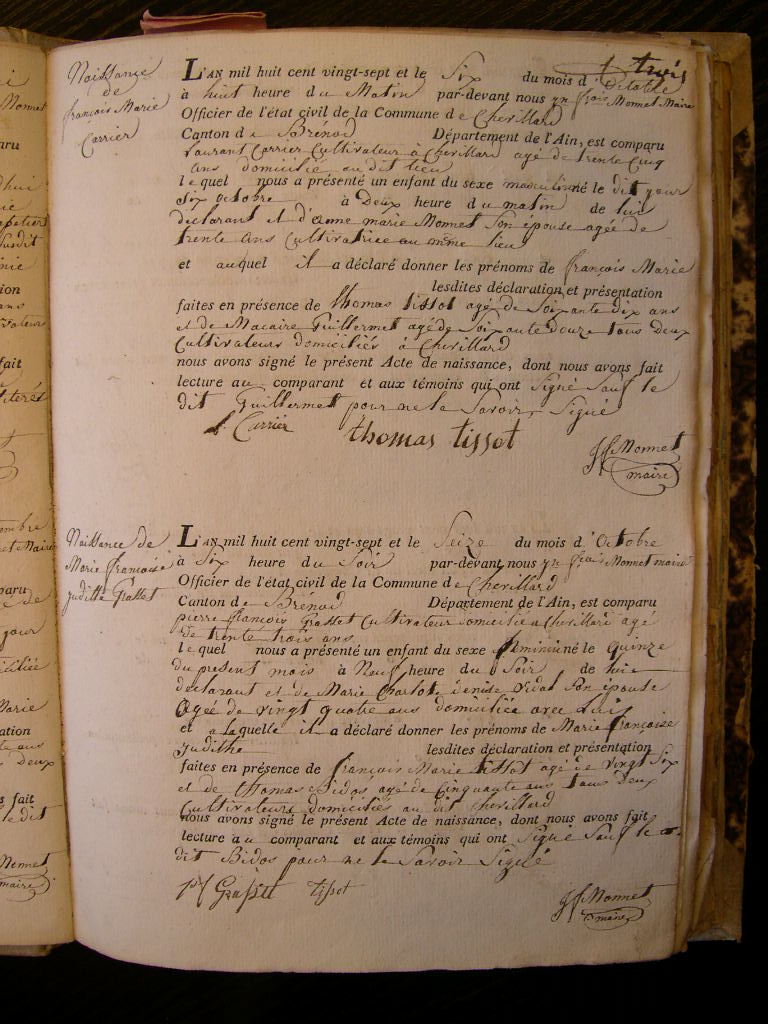 trois
Naissance
de
françois Marie
Carrier
L'AN mil huit cent vingt-sept et le Six du mois d'Octobre
à huit heure du Matin par-devant nous jn frois Monnet Maire
Officier de l'état civil de la Commune de Chevillard
Canton de Brénod Département de l'Ain, est comparu
Laurant Carrier Cultivateur à Chevillard agé de trente Cinq
ans domicilié au dit lieu
lequel nous a présenté un enfant du sexe masculin né le dit jour
Six octobre à Deux heure du matin de lui
déclarant et d'anne marie Monnet Son épouse agée de
trente ans Cultivatrice au même lieu
et auquel il a déclaré donner les prénoms de françois Marie
lesdites déclaration et présentation
faites en présence de thomas tissot agé de Soixante dix ans
et de Macaire Guillermet agé de Soixante douze tous Deux
Cultivateurs domiciliés à Chevillard
nous avons signé le présent Acte de naissance, dont nous avons fait
lecture au comparant et aux témoins qui ont Signé Sauf le
dit Guillermet pour ne le Savoir Signé
L Carrier thomas tissot
jf Monnet
maire
Naissance de
Marie françoise
juditte Grasset
L'AN mil huit cent vingt-sept et le Seize du mois d'Octobre
à Six heure du Soir par-devant nous jn frois Monnet maire
Officier de l'état civil de la Commune de Chevillard
Canton de Brénod Département de l'Ain, est comparu
pierre françois Grasset Cultivateur domicilié a Chevillard agé
de trente trois ans
lequel nous a présenté un enfant du sexe féminin né le quinze
du present mois à Neuf heure du Soir de lui
déclarant et de Marie Charlote denise Vidal Son épouse
agée de vingt quatre ans domiciliée avec lui
et a laquelle il a déclaré donner les prénoms de Marie françoise
Judithe lesdites déclaration et présentation
faites en présence de françois Marie tissot agé de vingt Six
et de thomas Bidos agé de Cinquante ans tous Deux
Cultivateurs domiciliés au dit Chevillard
nous avons signé le présent Acte de naissance, dont nous avons fait
lecture au comparant et aux témoins qui ont Signé Sauf le
dit Bidos pour ne le Savoir Signé
pf Grasset tissot
jf Monnet
maire